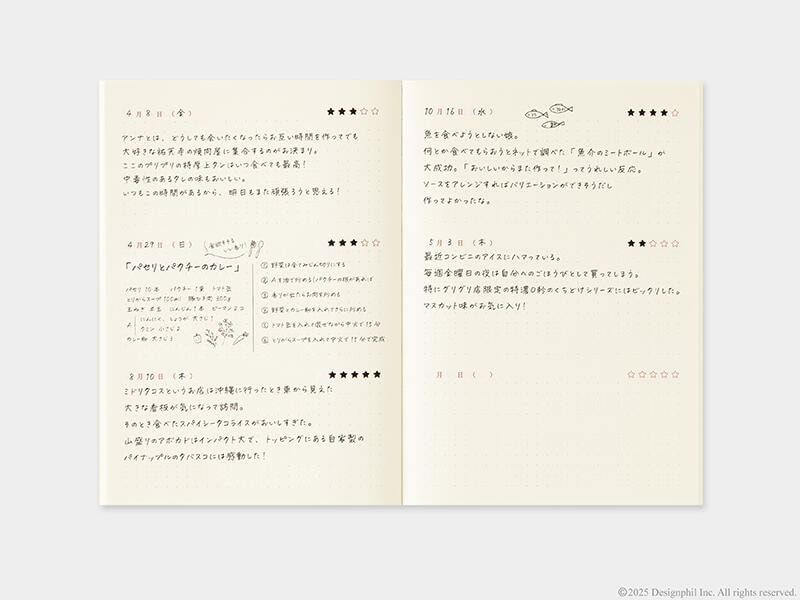 4月8日（金）★★★☆☆
アンナとは、どうしても会いたくなったらお互い時間を作ってでも
大好きな祐天寺の焼肉屋に集合するのがお決まり。
ここのプリプリの特厚上タンはいつ食べても最高！
中毒性のあるタレの味もおいしい。
いつもこの時間があるから、明日もまた頑張ろうと思える！
4月29日（日）★★★☆☆
食欲をそそる
いい香り！
「パセリとパクチーのカレー」
パセリ 10本 パクチー 1束 トマト缶
とりがらスープ 100ml 豚ひき肉 300g
玉ねぎ 半玉 にんじん 1本 ピーマン 2コ
A にんにく、しょうが 大さじ1
クミン 小さじ2
カレー粉 大さじ3
① 野菜は全てみじん切りにする
② Aを油で炒める(パクチーの根があれば
③ 香りが出たらお肉を炒める
④ 野菜とカレー粉を入れてさらに炒める
⑤ トマト缶を入れて混ぜながら中火で15分
⑥ とりがらスープを入れて中火で15分で完成
8月10日（木）★★★★★
ミドリタコスというお店は沖縄に行ったとき車から見えた
大きな看板が気になって訪問。
そのとき食べたスパイシータコライスがおいしすぎた。
山盛りのアボカドはインパクト大で、トッピングにある自家製の
パイナップルのタバスコには感動した！
10月16日（水）★★★★☆
魚を食べようとしない娘。
何とか食べてもらおうとネットで調べた「魚介のミートボール」が
大成功。「おいしいからまた作って！」ってうれしい反応。
ソースをアレンジすればバリエーションができそうだし
作ってよかったな。
5月3日（木）★★☆☆☆
最近コンビニのアイスにハマっている。
毎週金曜日の夜は自分へのごほうびとして買ってしまう。
特にグリグリ店限定の特濃0秒のくちどけシリーズにはビックリした。
マスカット味がお気に入り！
月 日（ ）☆☆☆☆☆
©2025 Designphil Inc. All rights reserved.